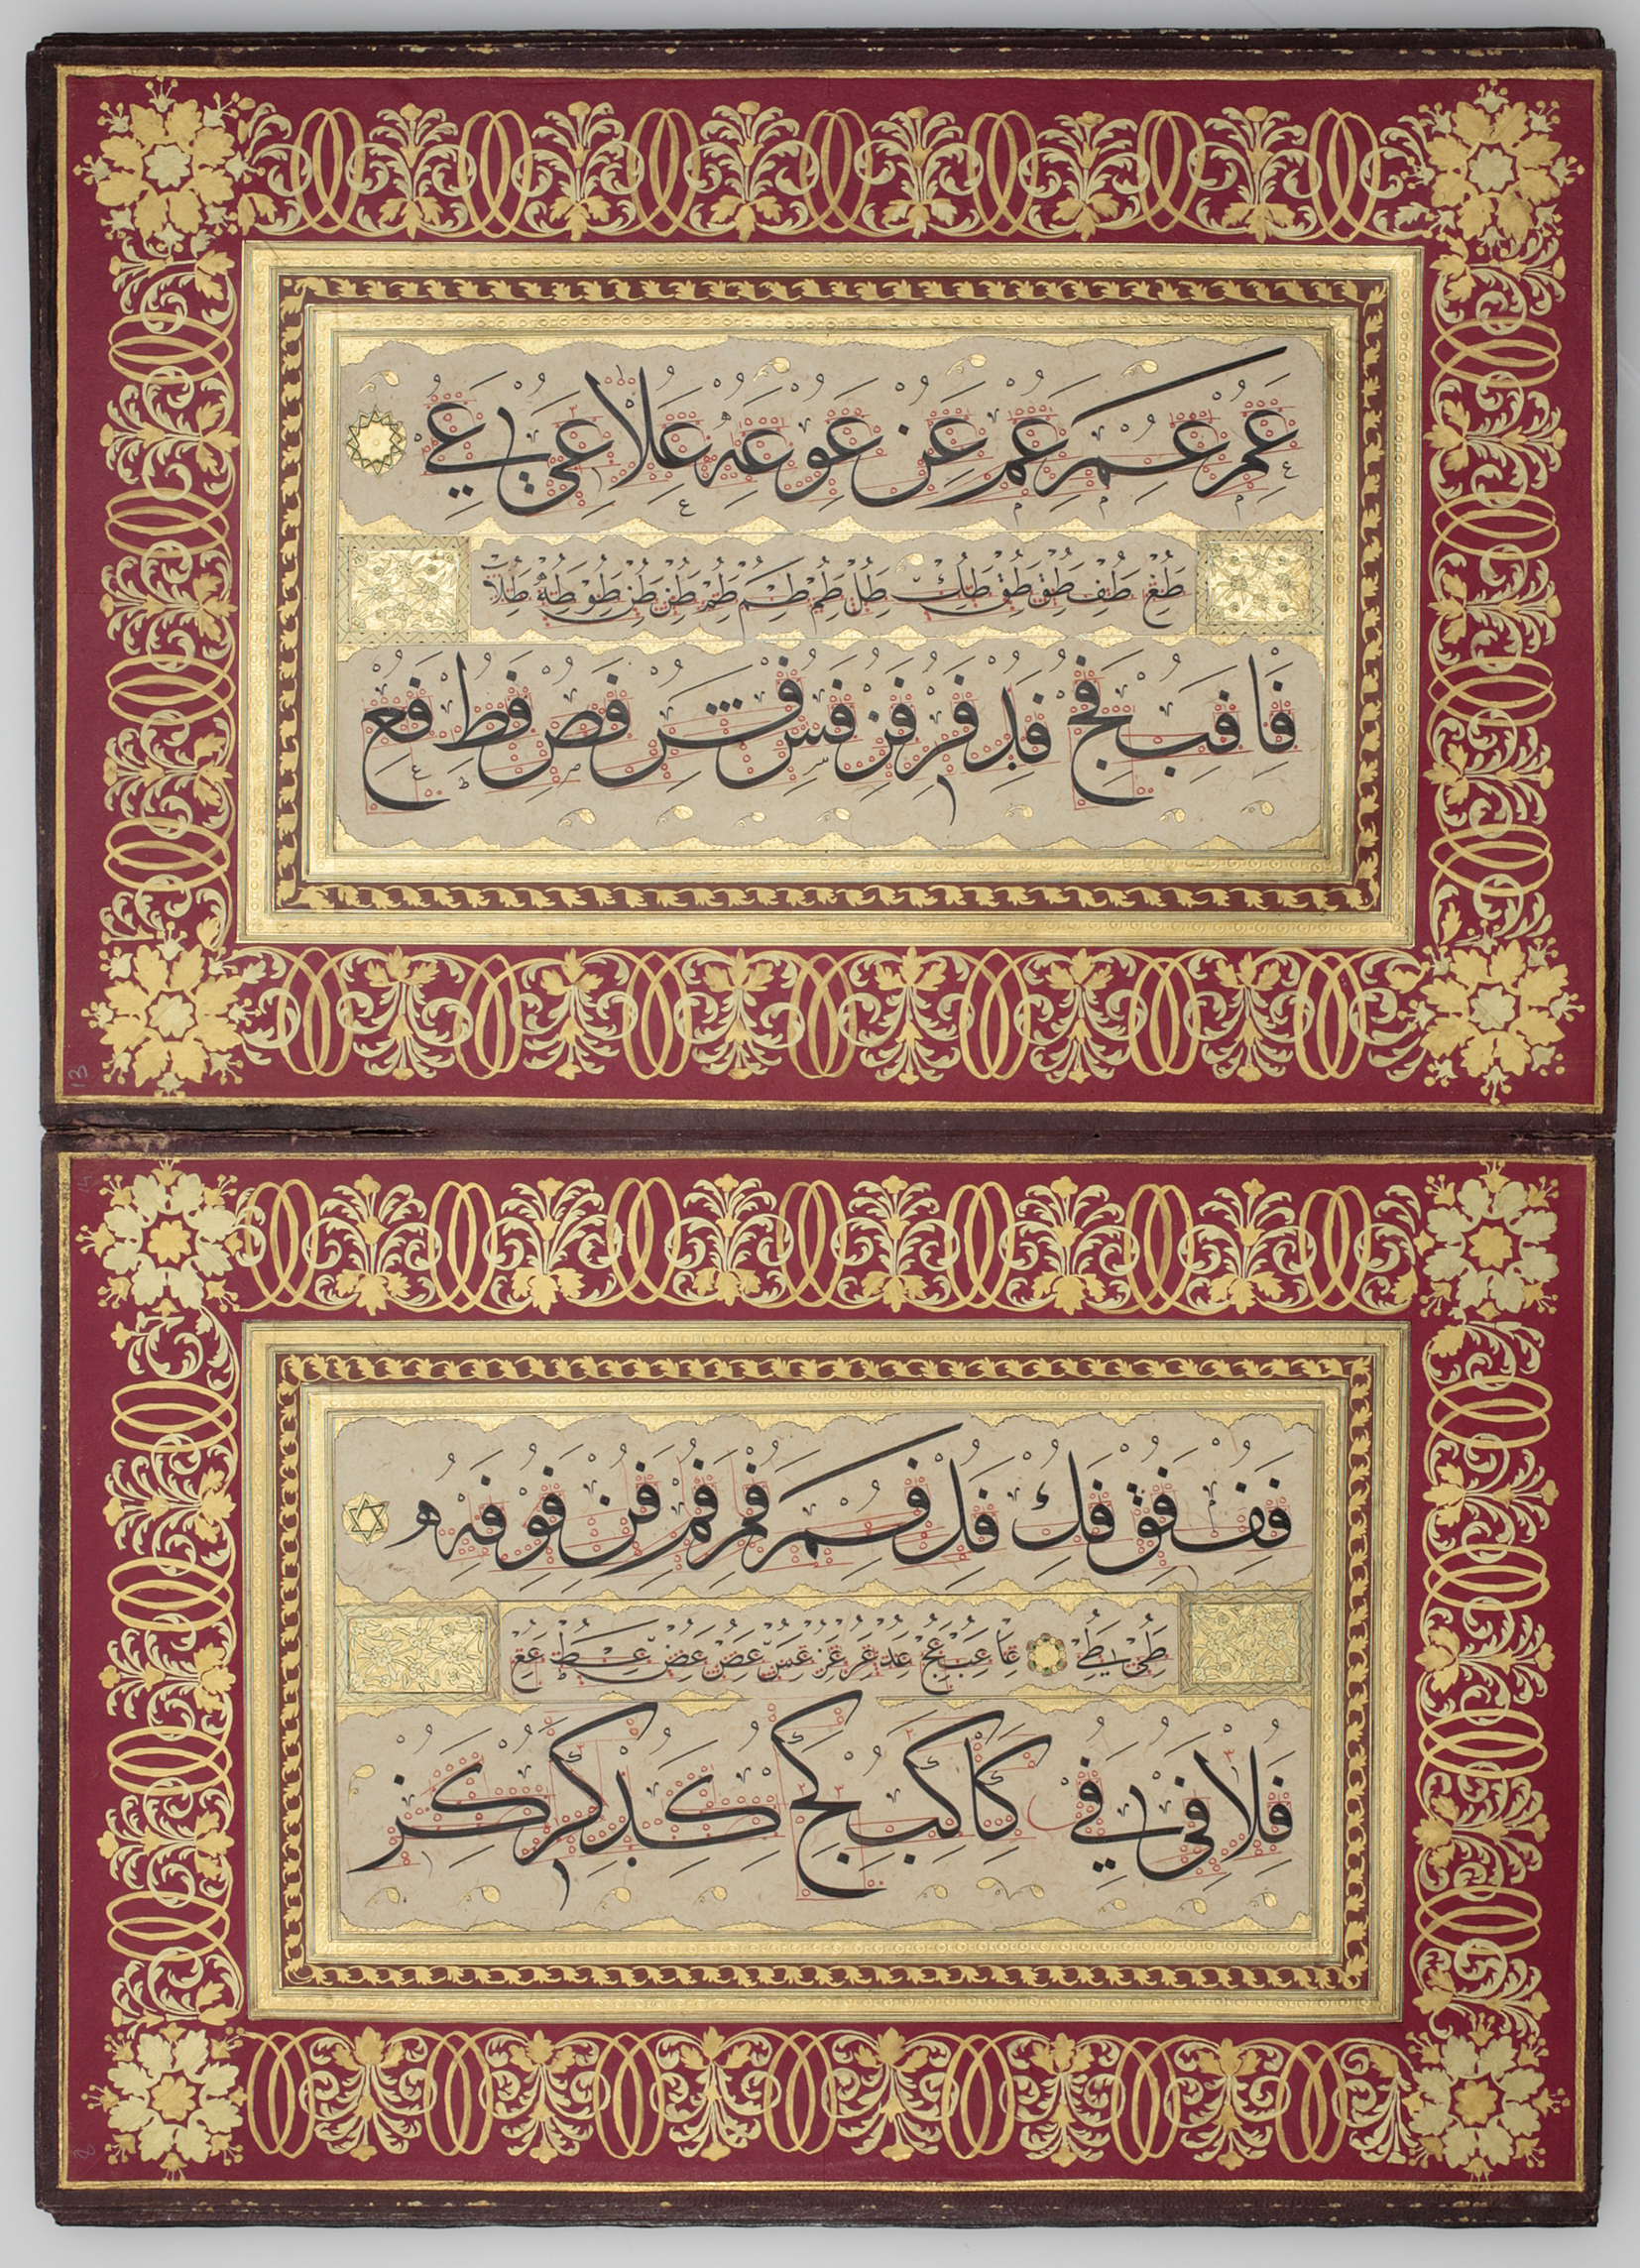 عم عم عم عن عو عه علا عى عي
طع طف طق طق طك طل طم طم طم طن طن طو طه طلا
فا فب فج فد فر فن فس فس فص فط فع
13
14
فف فق فك فل فم فم فم فن فو فه ه
طى طي عا عب عج عد عر عن عس عص عص عط عع
فلا فى في كا كب كج كد كر كز